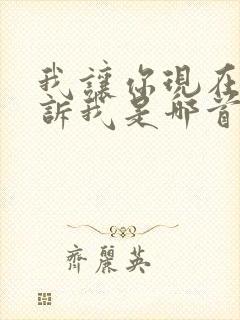 我讓你現在
訴我是那首
齊麗英